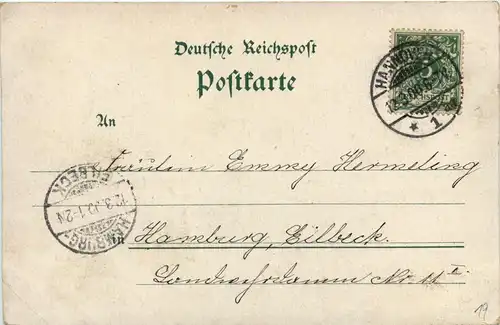 Deutsche Reichspost
Postkarte
An
Fräulein Emmy Hermeling
in Hamburg, Eilbeck.
Landwehrdamm Nr.
HANNOVER
1
HAMBURG
EILBECK
12.3.
1-2N
19